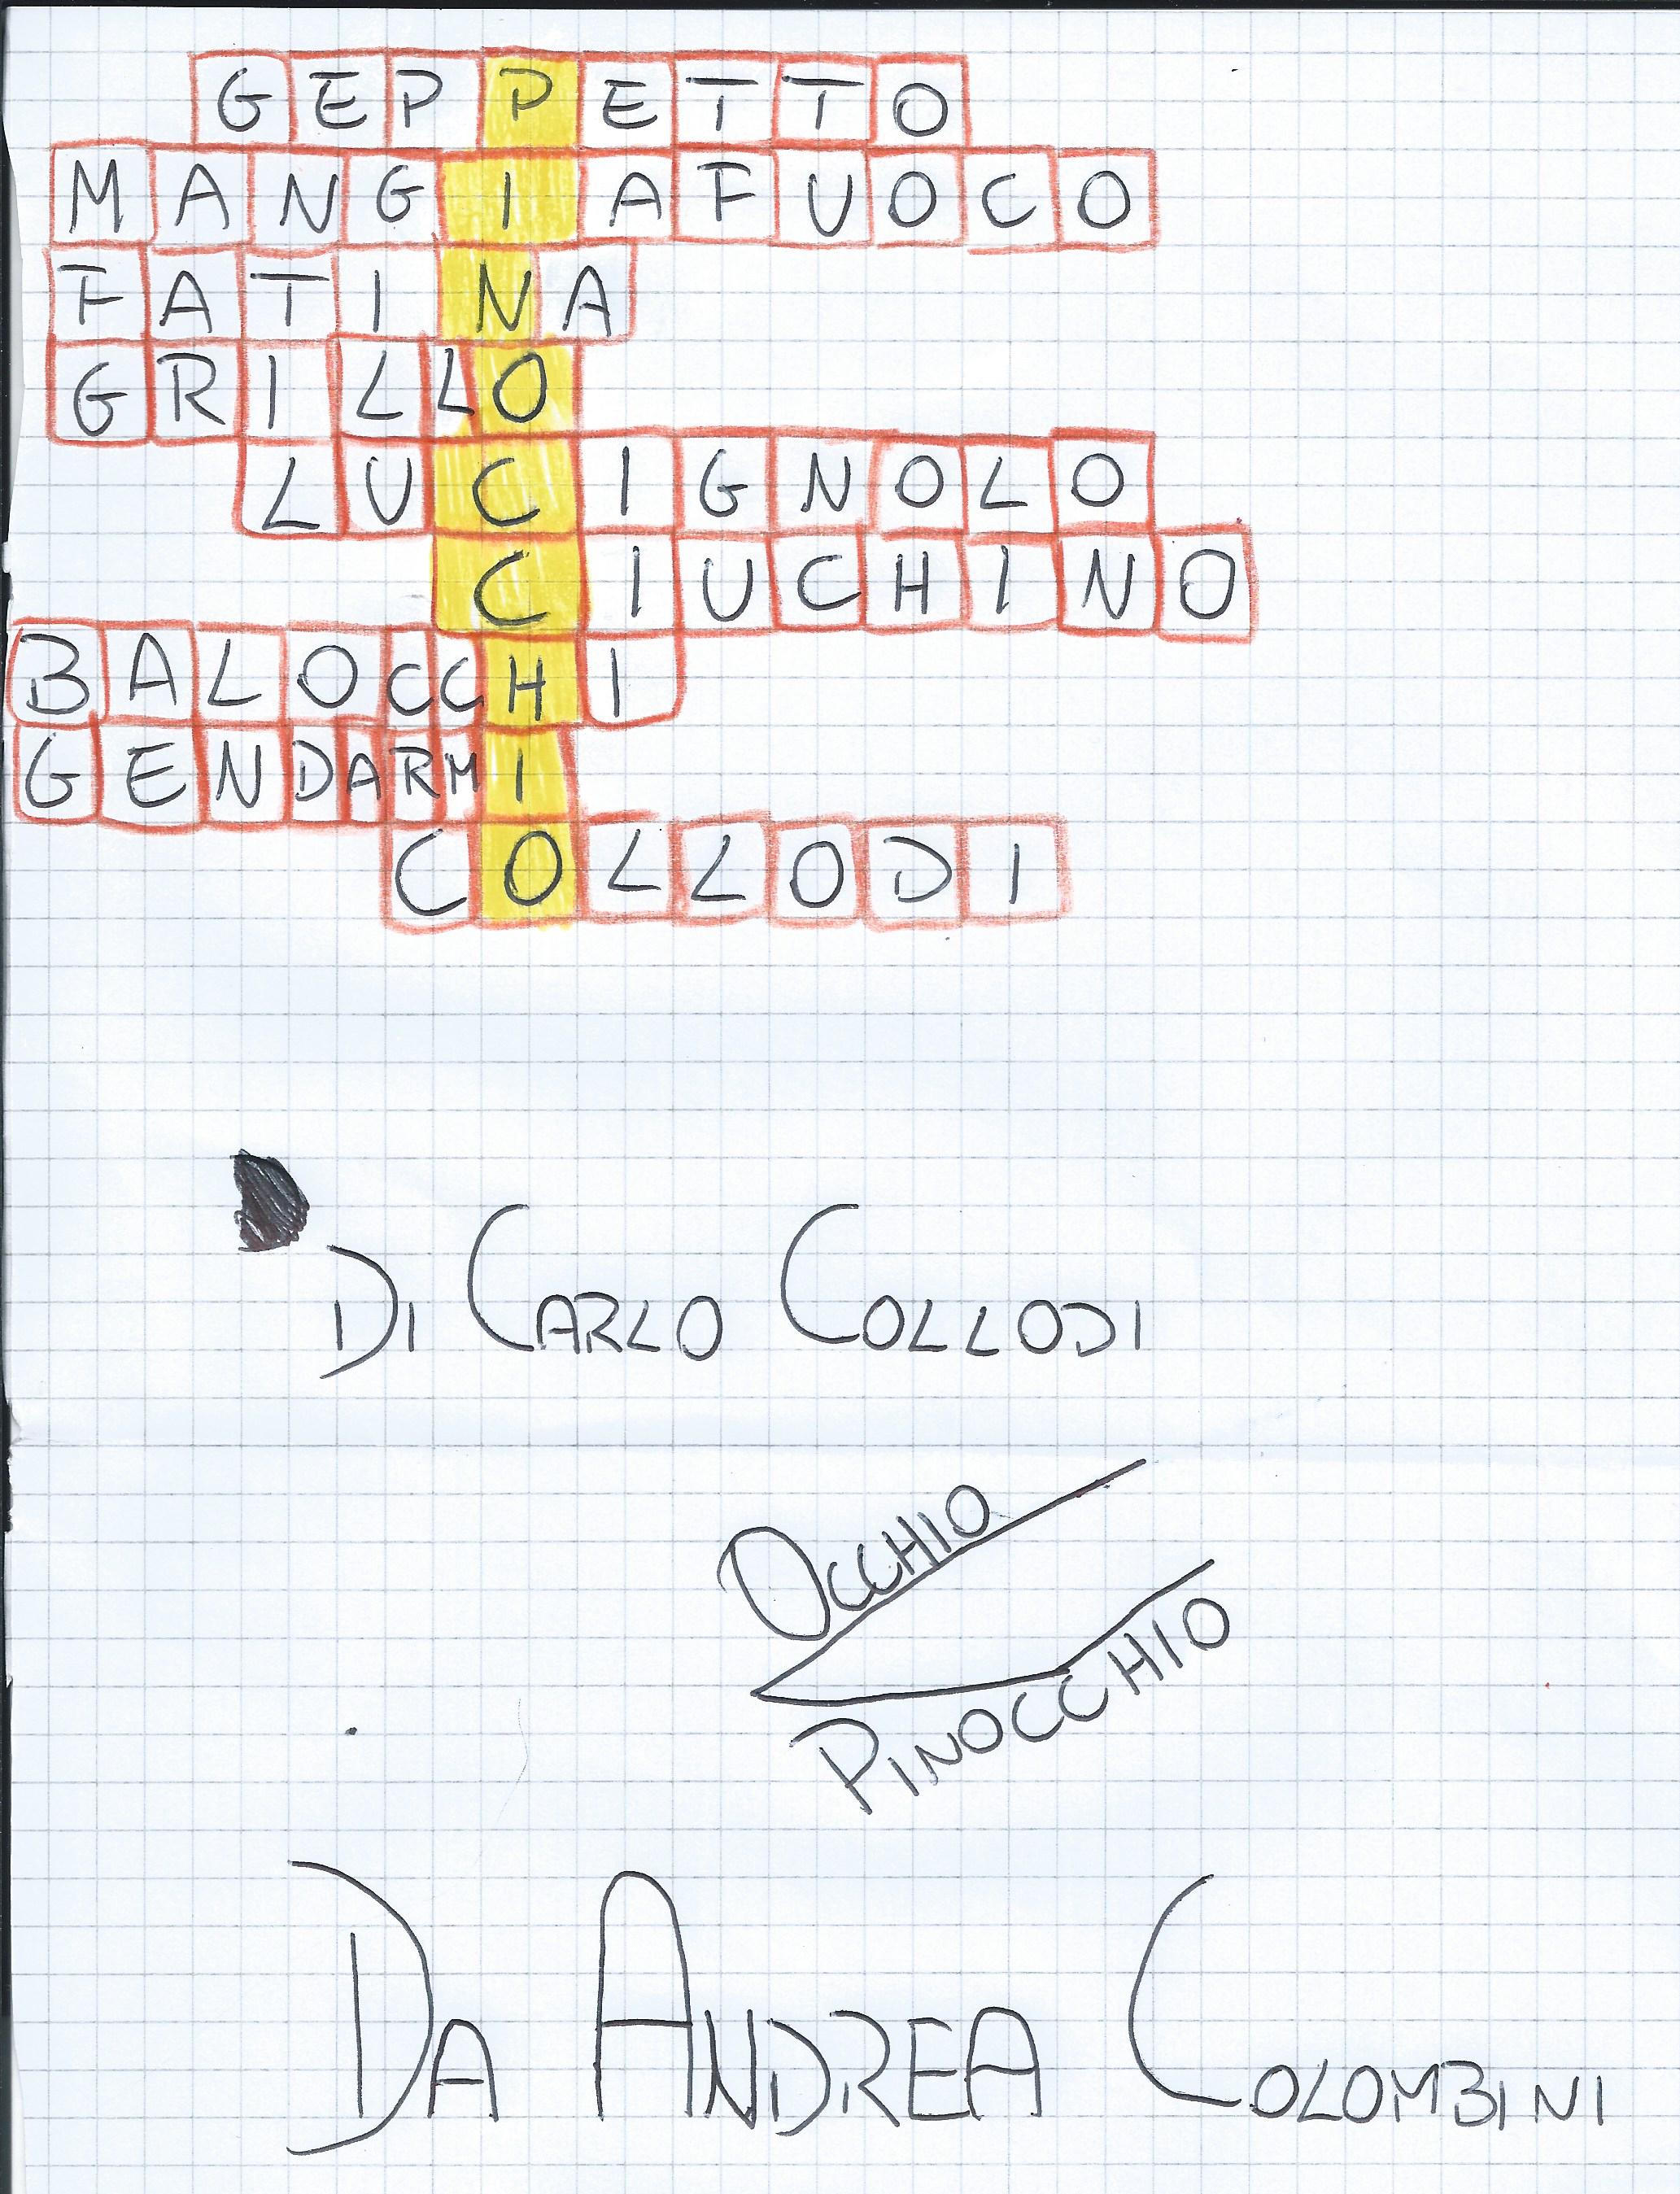 GEPPETTO
MANGIAFUOCO
FATINA
GRILLO
LUCIGNOLO
CIUCHINO
BALOCCHI
GENDARMI
COLLODI
DI CARLO COLLODI
OCCHIO
PINOCCHIO
DA ANDREA COLOMBINI